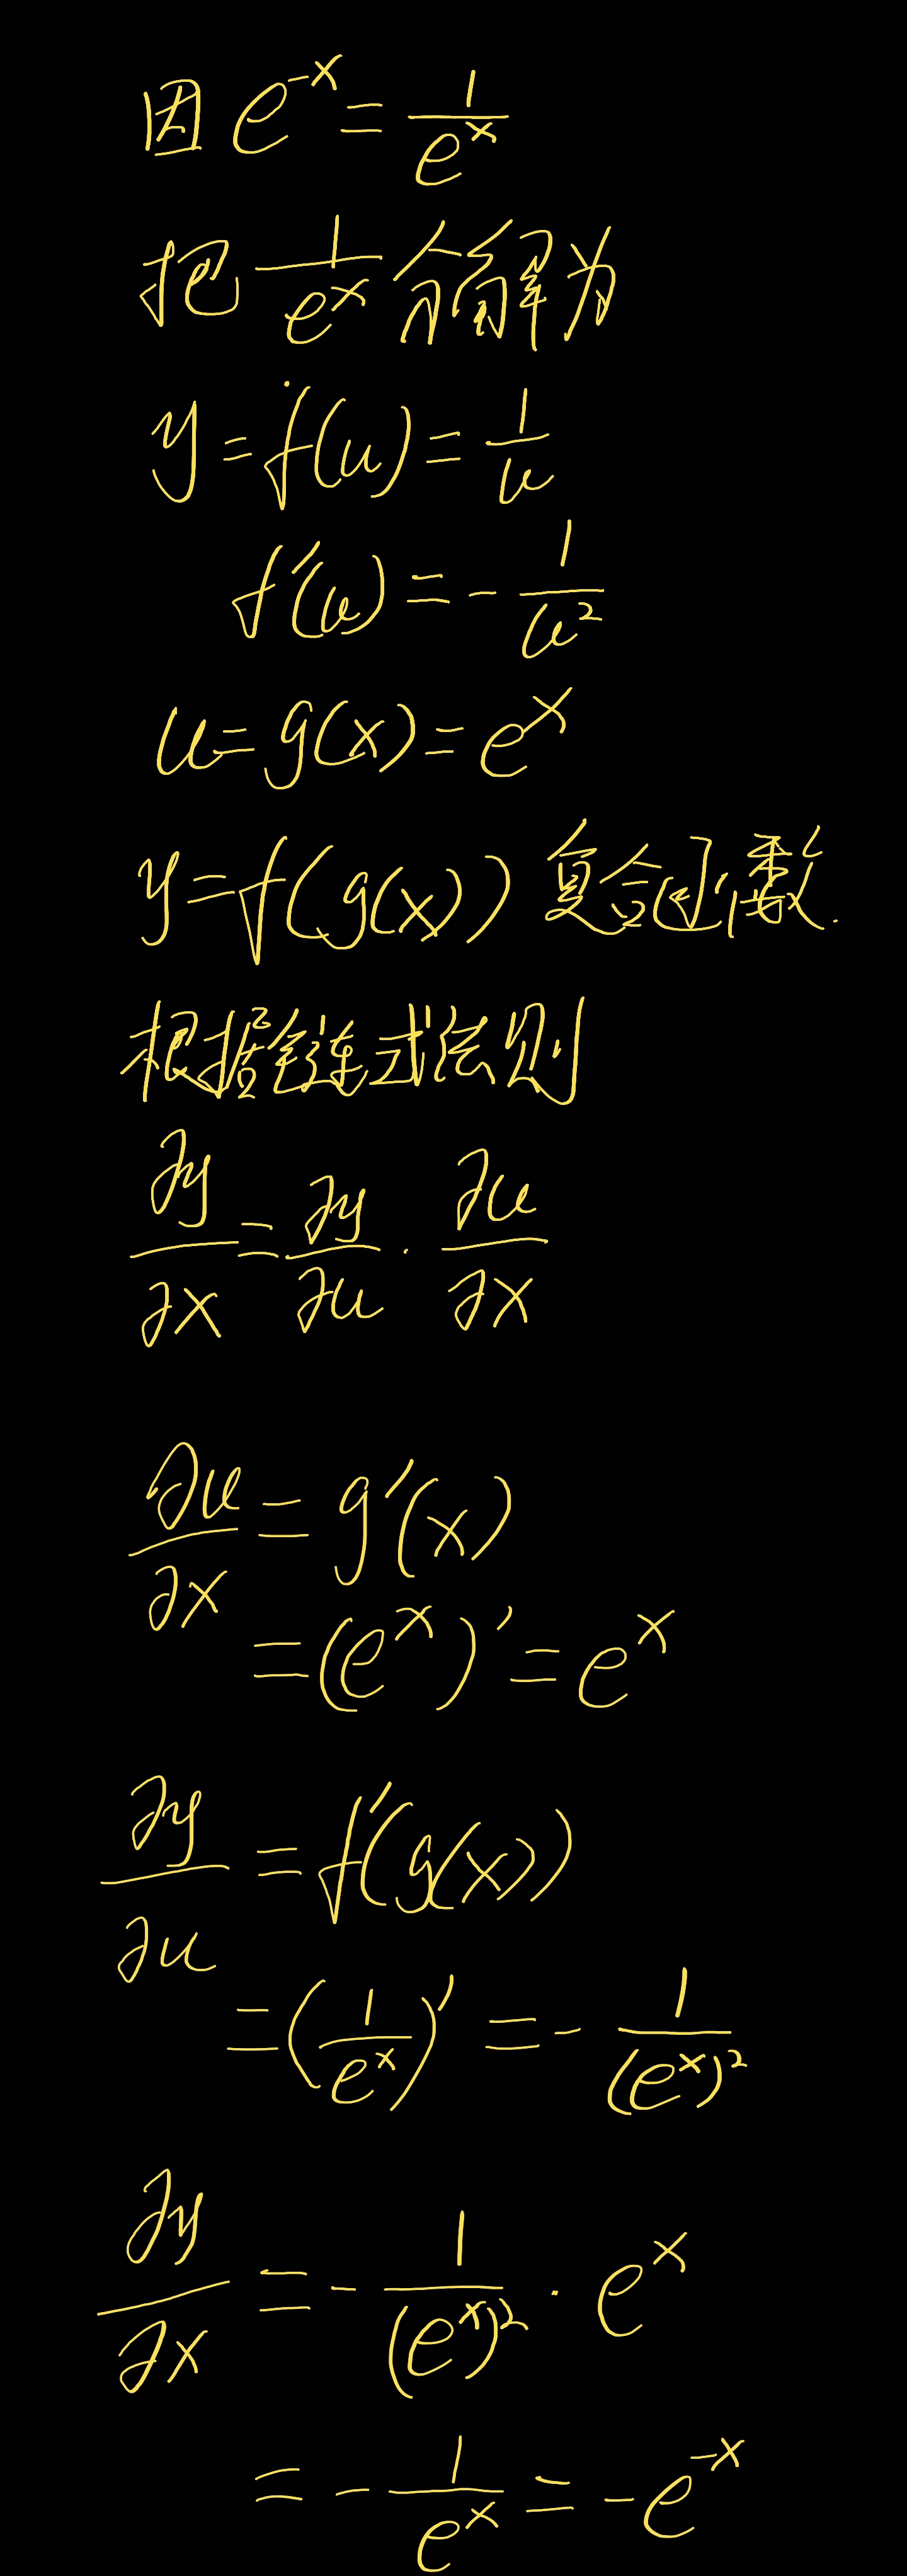 因 e^{-x} = \frac{1}{e^x}
把 \frac{1}{e^x} 分解为
y = f(u) = \frac{1}{u}
f'(u) = -\frac{1}{u^2}
u = g(x) = e^x
y = f(g(x)) 复合函数.
根据链式法则
\frac{∂y}{∂x} = \frac{∂y}{∂u} · \frac{∂u}{∂x}
\frac{∂u}{∂x} = g'(x)
= (e^x)' = e^x
\frac{∂y}{∂u} = f'(g(x))
= (\frac{1}{e^x})' = -\frac{1}{(e^x)^2}
\frac{∂y}{∂x} = -\frac{1}{(e^x)^2} · e^x
= -\frac{1}{e^x} = -e^{-x}